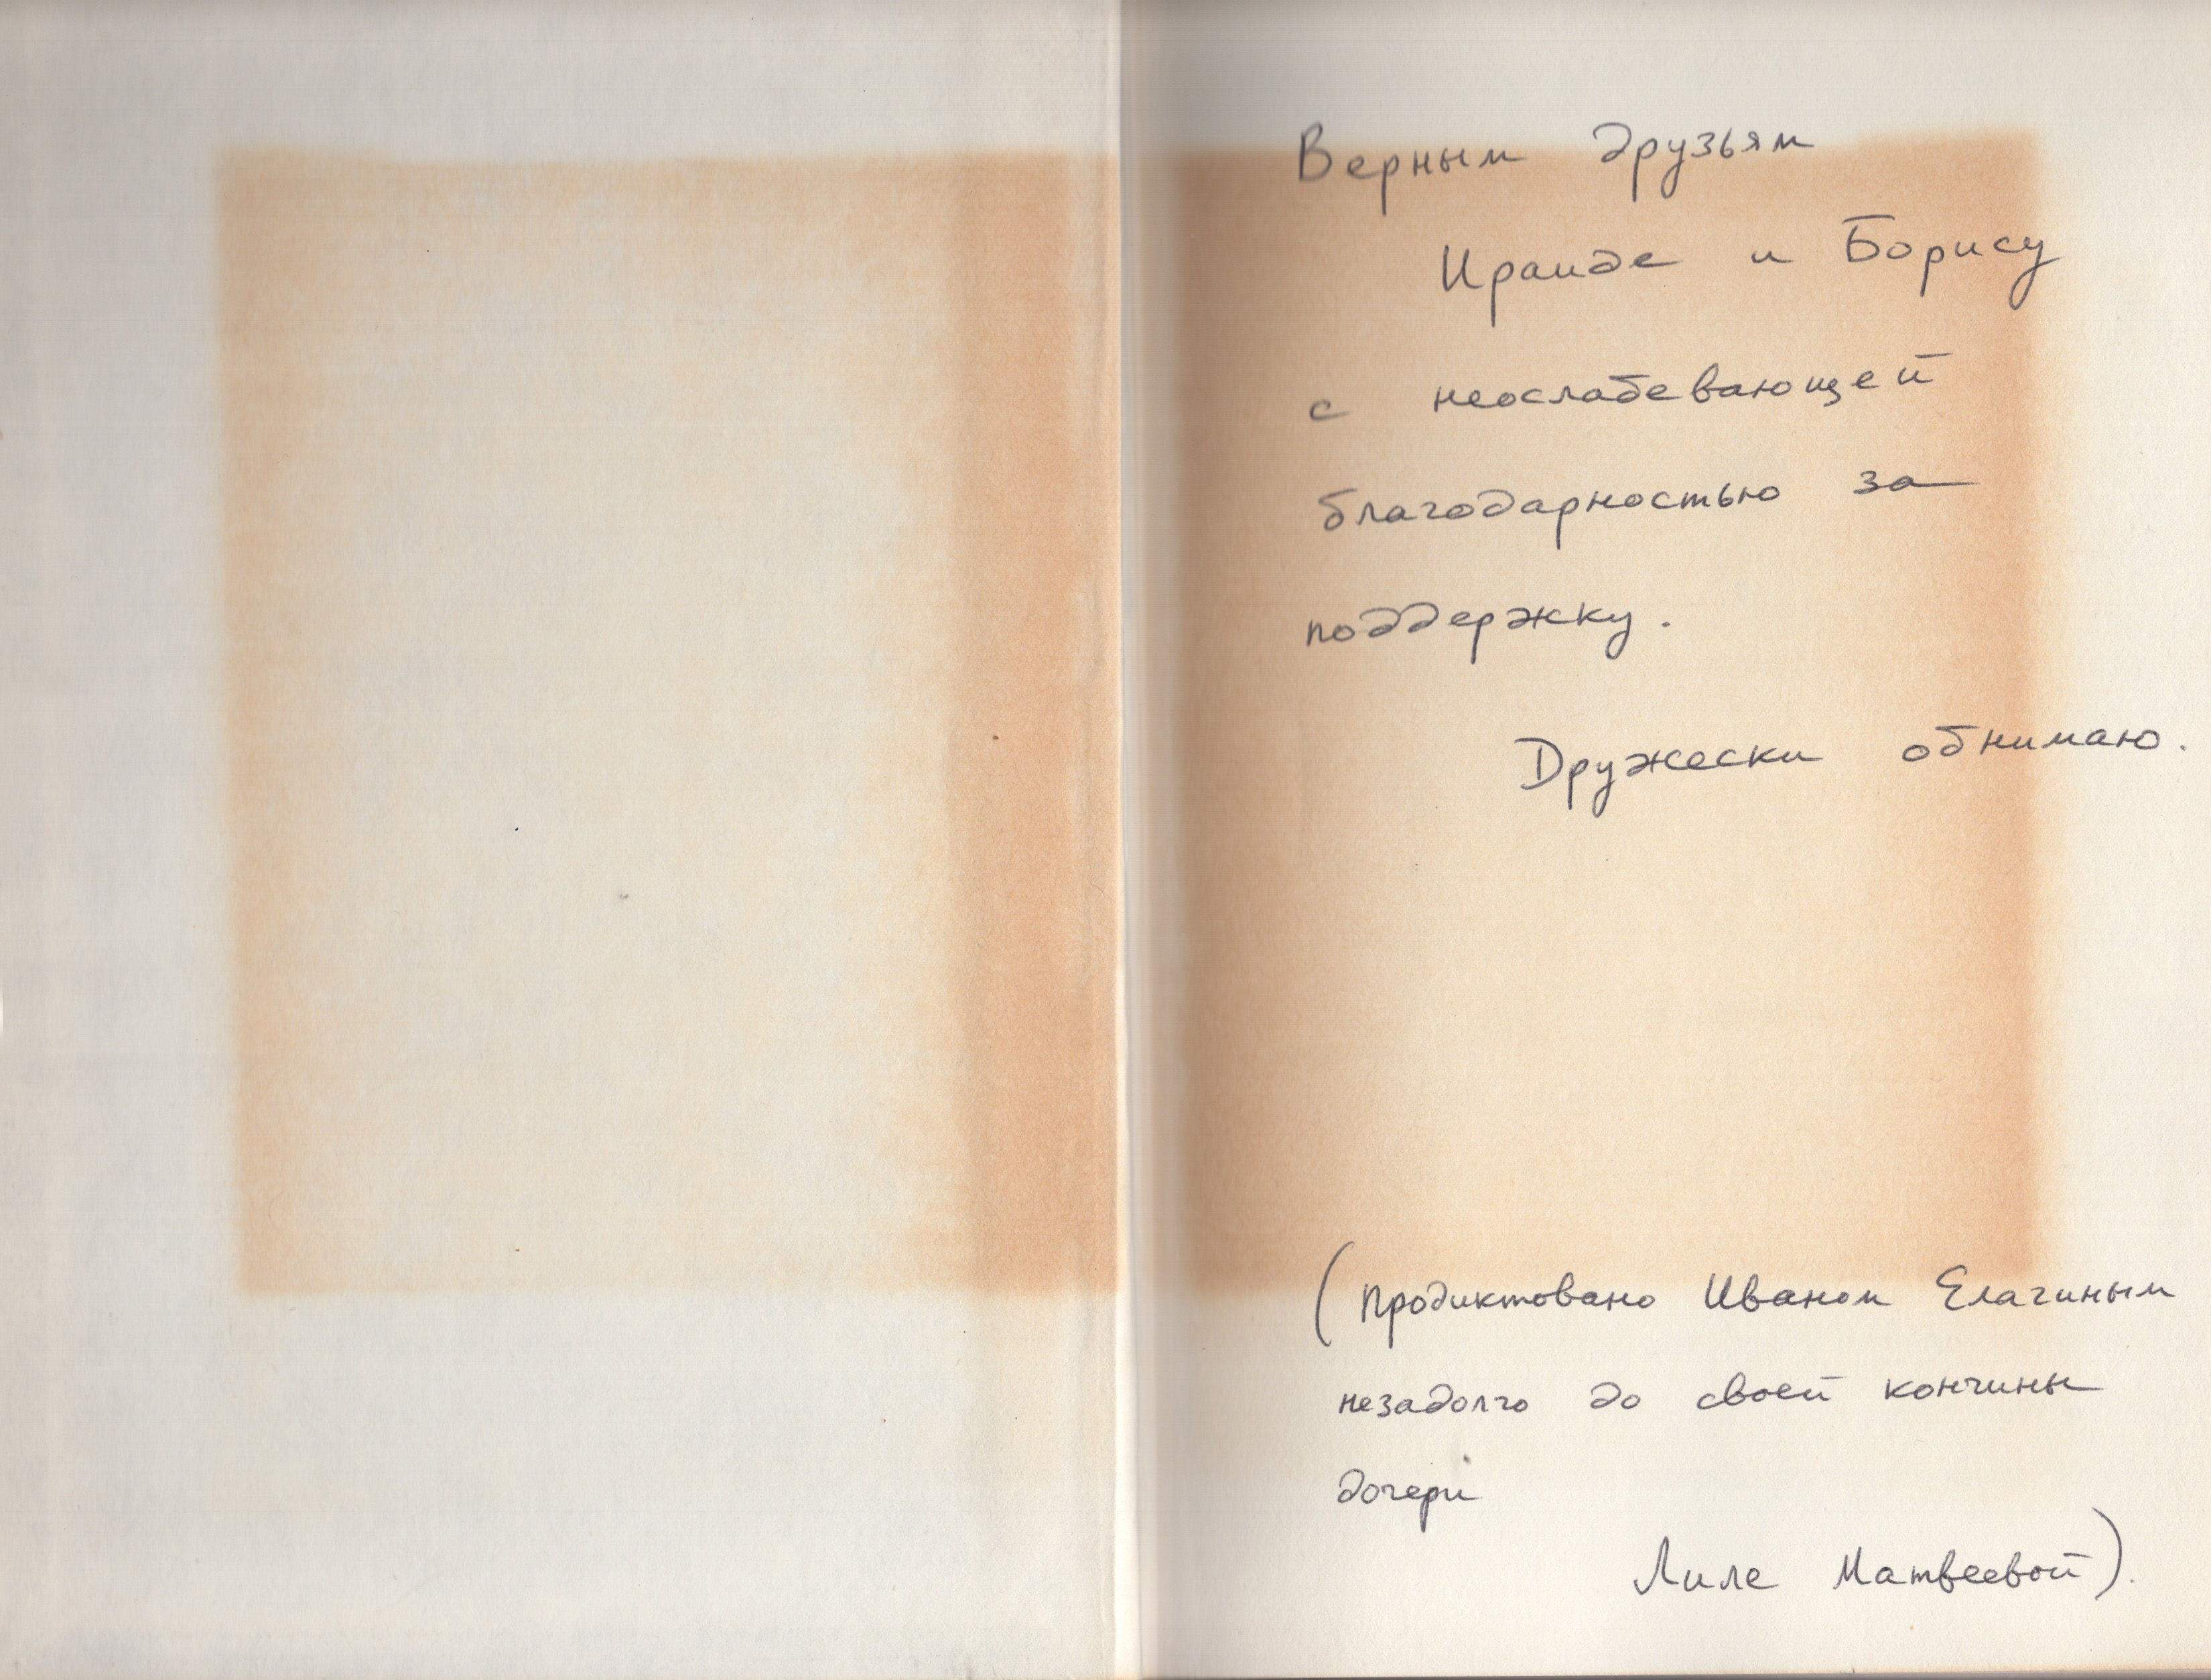 Верным друзьям
Ираиде и Борису
с неослабевающей
благодарностью за
поддержку.
Дружески обнимаю.
(продиктовано Иваном Елагиным
незадолго до своей кончины
дочери
Лиле Матвеевой).